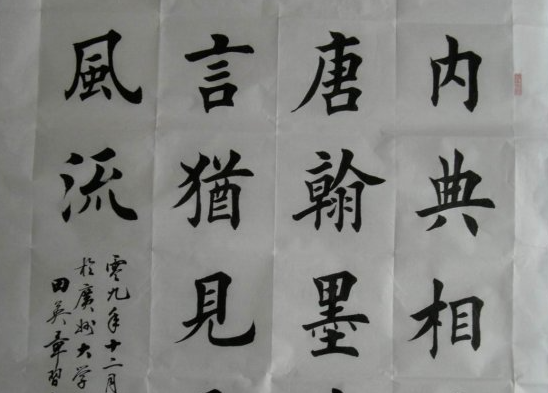 内典相
唐翰墨
言猶見
風流
零九年十二月
於廣州大学
田英章習